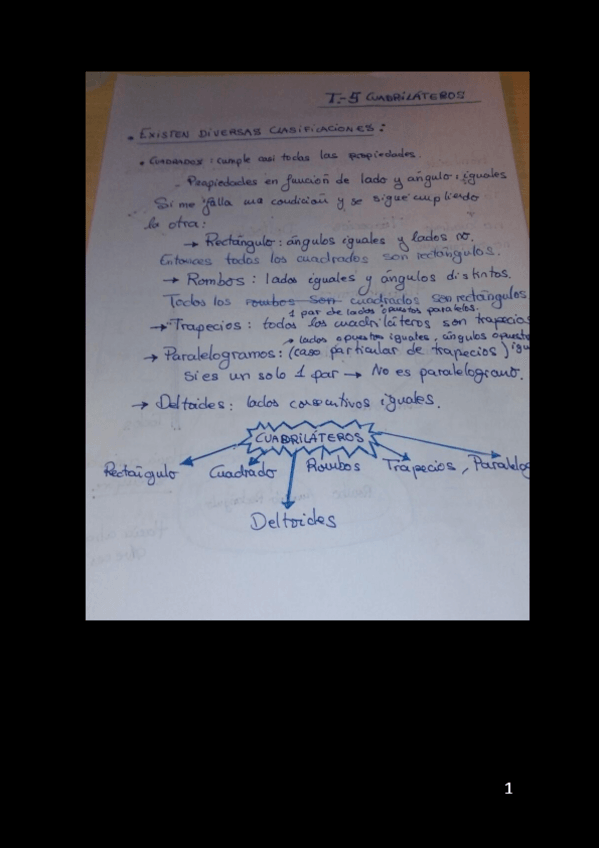 T.-5 CUADRILÁTEROS
• EXISTEN DIVERSAS CLASIFICACIONES:
• CUADRADOS: cumple casi todas las propiedades.
- Propiedades en función de lado y ángulo: iguales
Si me falla una condición y se sigue cumpliendo
la otra:
→ Rectángulo: ángulos iguales y lados no.
Entonces todos los cuadrados son rectángulos.
→ Rombos: lados iguales y ángulos distintos.
Todos los rombos son cuadrados son rectángulos
1 par de lados opuestos paralelos.
→ Trapecios: todos los cuadriláteros son trapecios
→ lados opuestos iguales, ángulos opuesto
→ Paralelogramos: (caso particular de trapecios) igu
Si es un solo 1 par → No es paralelogramo.
→ Deltoides: lados consecutivos iguales.
CUADRILÁTEROS
Rectángulo Cuadrado Rombos Trapecios, Paralelog
Deltoides
1